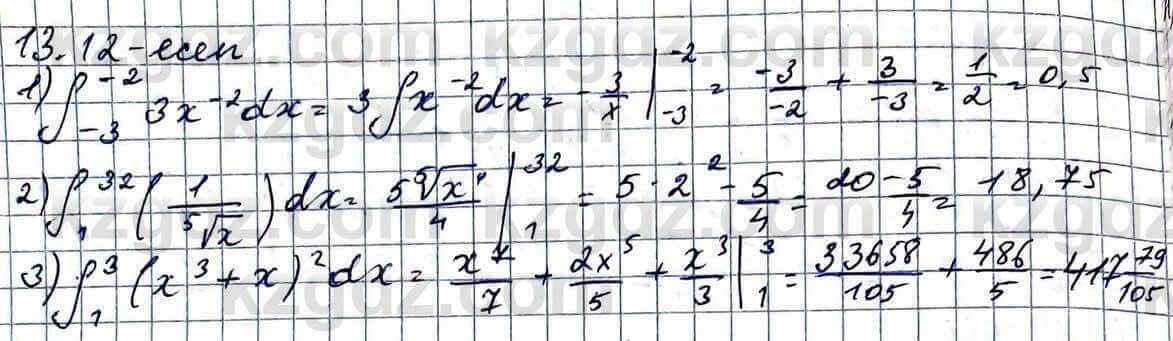 13.12-есеп
1) ∫₋₃⁻² 3x⁻² dx = 3∫x⁻² dx = -3/x |₋₃⁻² = -3/-2 + 3/-3 = 1/2 = 0,5
2) ∫₁³² (1/⁵√x) dx = 5⁵√x⁴/4 |₁³² = 5·2² - 5/4 = 20 - 5/4 = 18,75
3) ∫₁³ (x³+x)² dx = x⁷/7 + 2x⁵/5 + x³/3 |₁³ = 33658/105 + 486/5 = 417 79/105